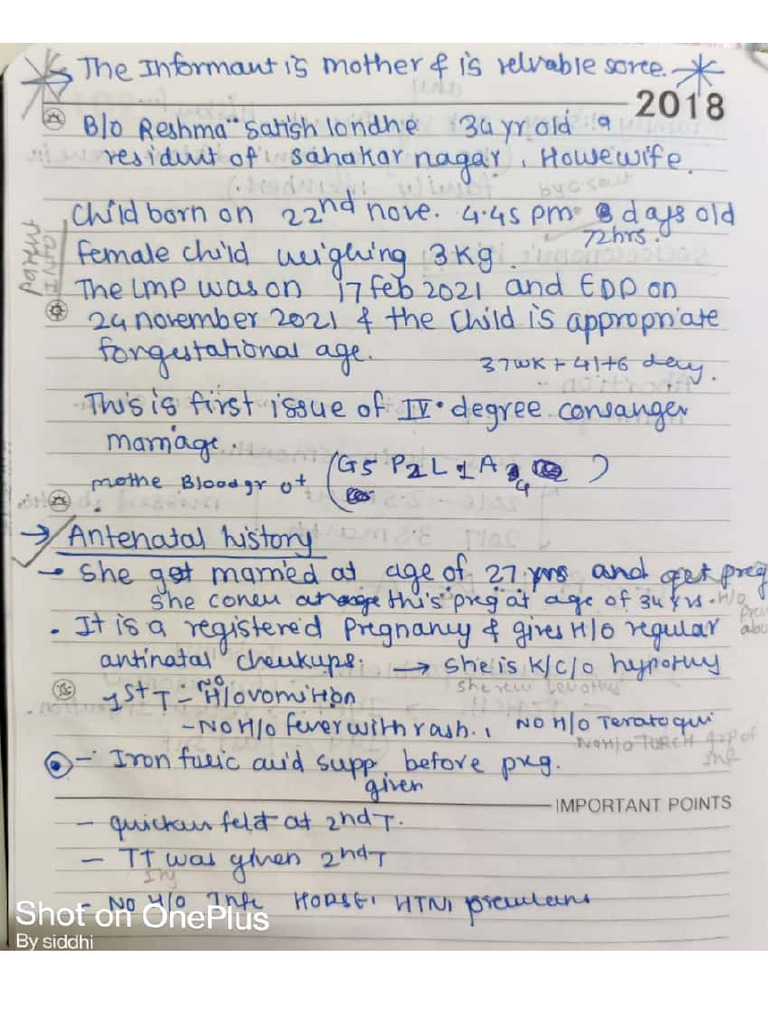 The Informant is mother & is relvable sorce.
2018
B/o Reshma Satish londhe 34 yr old a
residunt of Sahakar nagar, Housewife.
Child born on 22nd nove. 4.45 pm 3 days old
72hrs.
female child weighing 3 kg.
The LMP was on 17 feb 2021 and EDD on
24 november 2021 & the child is appropriate
for gestational age.
37wk + 41+6 day.
This is first issue of IV degree consanger
marriage.
mothe Blood gr o+ (G5 P2 L1 A 4)
→ Antenatal history
- she got married at age of 27 yrs and get preg
she conceu at age this preg at age of 34 yrs. H/o
. It is a registered pregnancy & gives H/o regular
antinatal cheukups. → she is K/C/O hypothy
1st T - NO H/o vomition
- NO H/o fever with rash., NO H/o Teratoqui
NO H/o TORCH grp of
Inf
- Iron fulic acid supp before preg.
given
IMPORTANT POINTS
- quicken feld at 2nd T.
- TT was given 2nd T
Inj
- NO H/o Infe
Shot on OnePlus
By siddhi